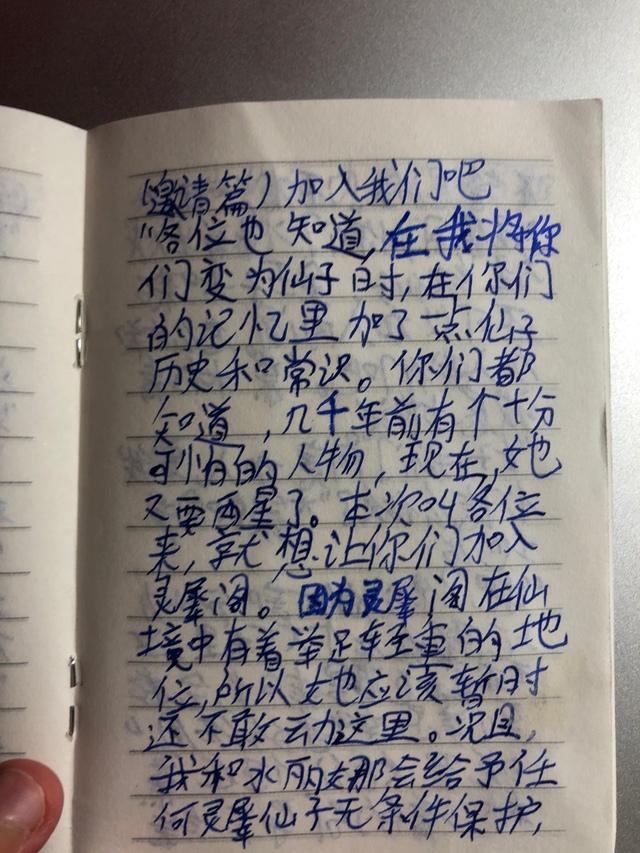 (邀请篇)加入我们吧
“各位也知道,在我将你
们变为仙子时,在你们
的记忆里加了一点仙子
历史和常识。你们都
知道,几千年前有个十分
可怕的人物,现在,她
又要西星了。本次叫各位
来,就想让你们加入
灵犀阁。因为灵犀阁在仙
境中有着举足轻重的地
位,所以她应该暂时
还不敢动这里。况且,
我和水丽娜会给予任
何灵犀仙子无条件保护,